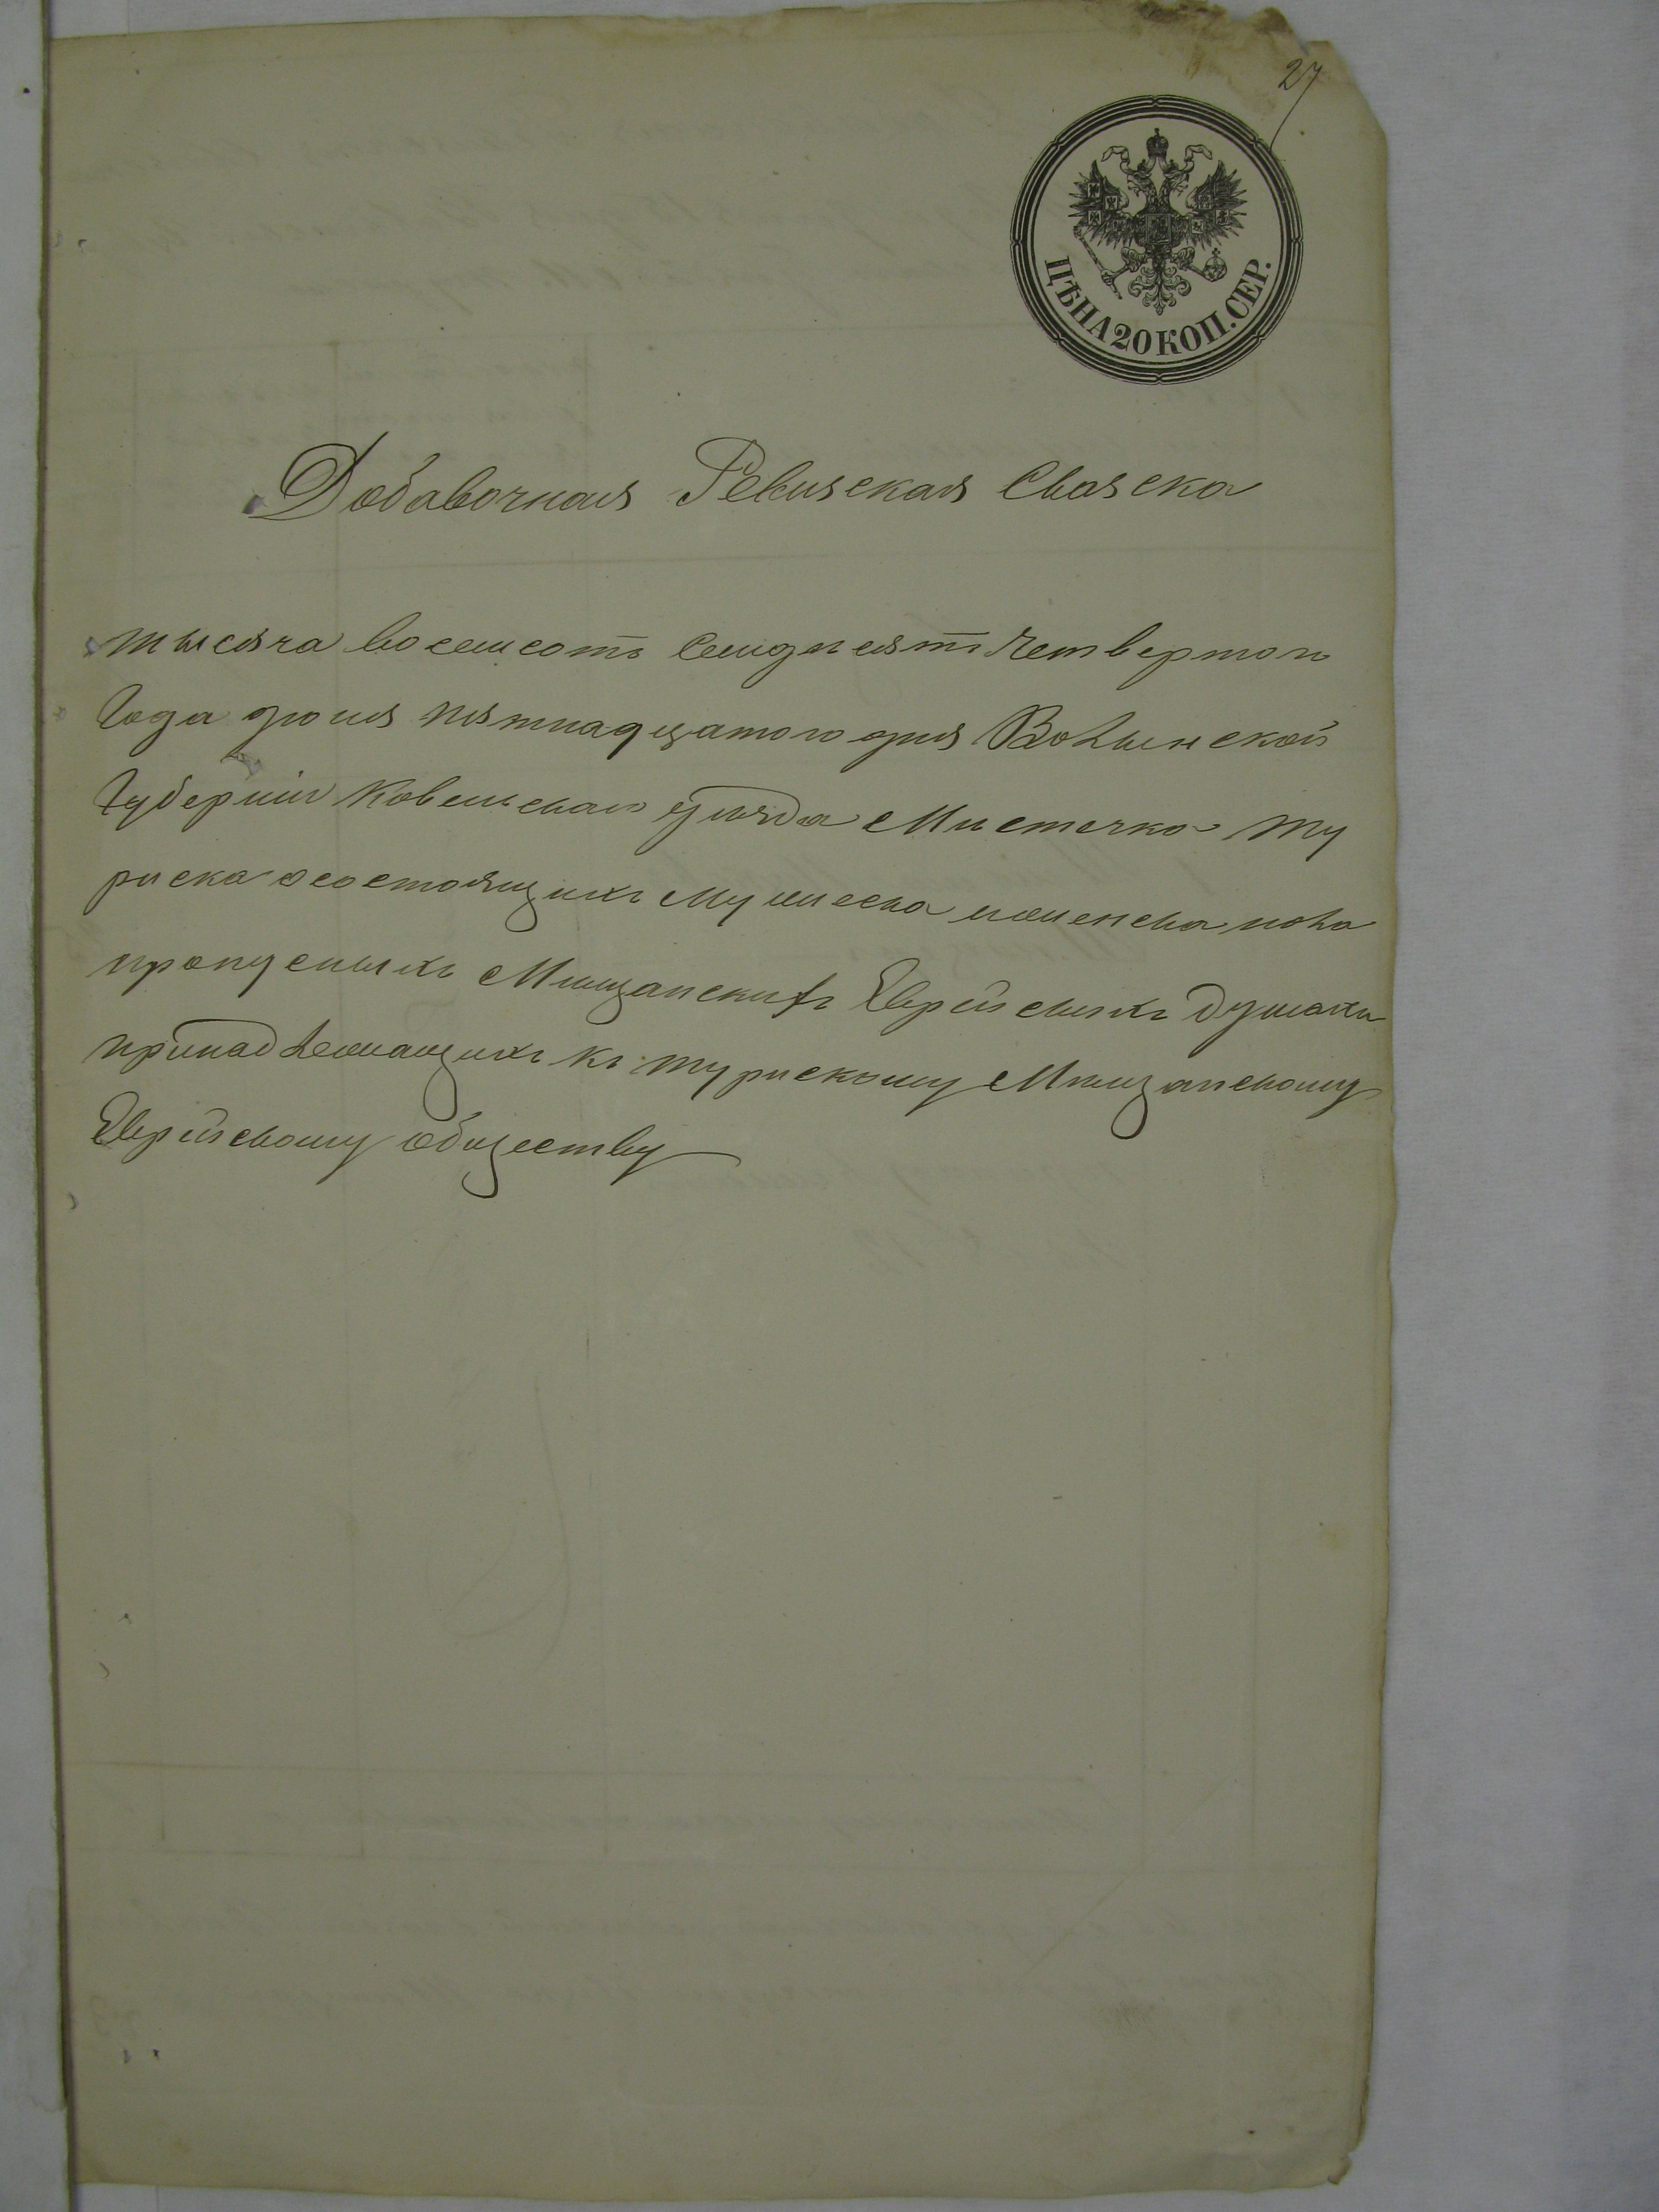 27
ЦѢНА 20 КОП. СЕР.
Добавочная Ревизская Сказска
тысяча восемсотъ Семдисятъ Четвертого
Года июня пятнадцатого дня Волынской
Губерніи Ковельскаго уѣзда Мистечка Ту
риска о состоящихъ Мужеска именска пола
пропусныхъ Мищанскихъ Еврейскихъ душахъ
принадлежащихъ къ Турискому Мищанскому
Еврейскому обществу